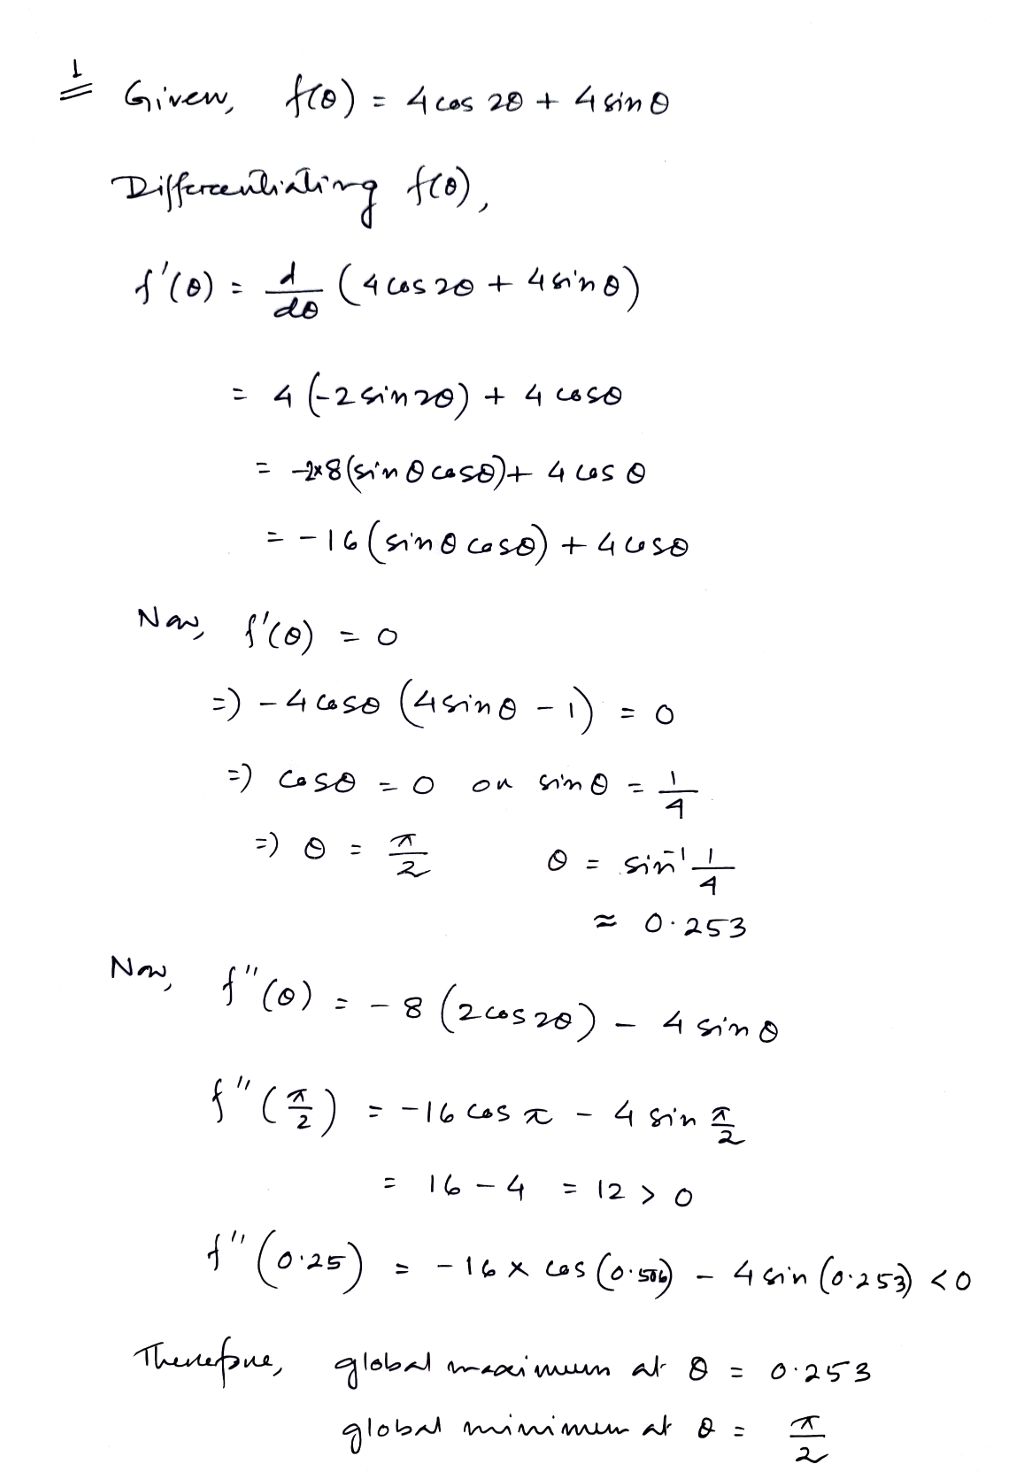 1 Given, f(θ) = 4 cos 2θ + 4 sin θ
Differentiating f(θ),
f'(θ) = d/dθ (4 cos 2θ + 4 sin θ)
= 4 (-2 sin 2θ) + 4 cos θ
= -2×8 (sin θ cos θ) + 4 cos θ
= -16 (sin θ cos θ) + 4 cos θ
Now, f'(θ) = 0
=) -4 cos θ (4 sin θ - 1) = 0
=) cos θ = 0 or sin θ = 1/4
=) θ = π/2 θ = sin⁻¹ 1/4
≈ 0.253
Now, f''(θ) = -8 (2 cos 2θ) - 4 sin θ
f''(π/2) = -16 cos π - 4 sin π/2
= 16 - 4 = 12 > 0
f''(0.25) = -16 × cos (0.506) - 4 sin (0.253) < 0
Therefore, global maximum at θ = 0.253
global minimum at θ = π/2